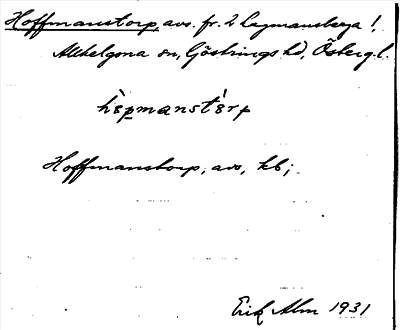 Hoffmanstorp, avs. fr. 2 Lagmansberga !,
Allhelgona sn, Göstrings hd, Östergl.
hòpmanstórp
Hoffmanstorp, avs, kb;
Erik Alm 1931